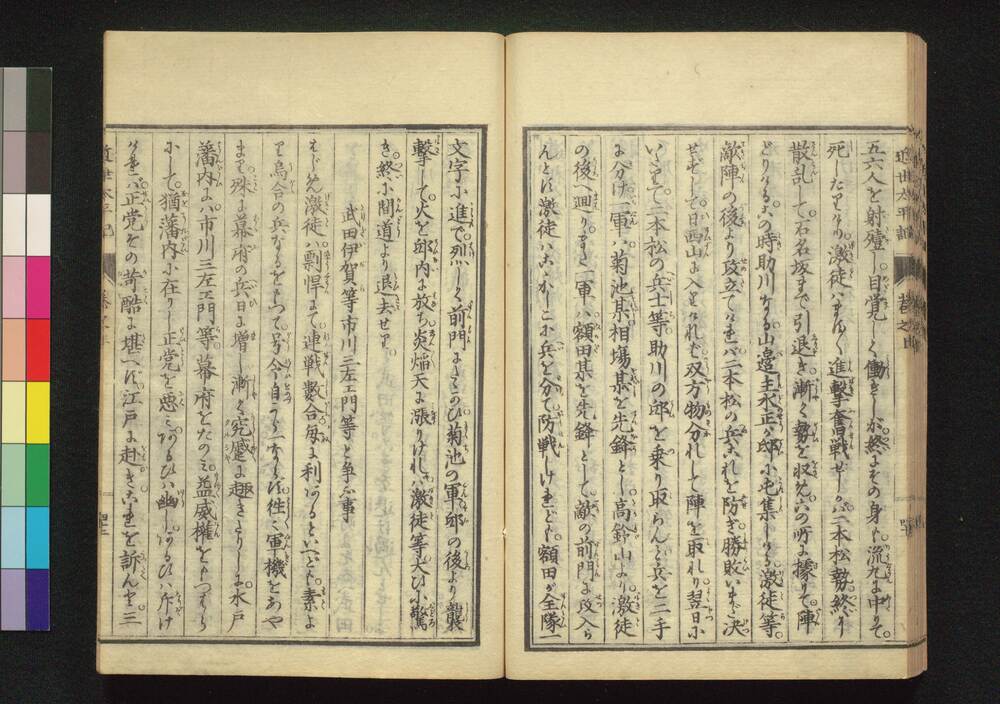 五六人を射殪し目覚しく働きしが終にその身も流丸に中りて
死したりける激徒ハますます進撃奮戦せしかバ二本松勢終に
散乱して石名坂まで引退き漸く勢を収め六の所に據りて陣
どりける此時助川なる山邉主水正が邸に屯集しける激徒等
敵陣の後より攻立てけれバ二本松の兵これを防ぎ勝敗いまだ決
せずして日西山に入りけれバ双方物分れして陣を取れり翌日に
いたりて二本松の兵士等助川の邸を乗り取らんと兵を三手
に分け一軍ハ菊池某相塲某を先鋒とし高鈴山より激徒
の後へ廻りまた一軍ハ額田某を先鋒として敵の前門に攻入ら
んとす激徒ハこれかしこに兵を分て防戦しけれども額田が全隊一
文字に進で烈しく前門にせまり菊池の軍邸の後より襲
撃して火を邸内に放ち炎焔天に漲りけれバ激徒等大ひに驚
き終に間道より退去せり
武田伊賀等市川三左エ門等と争ふ事
はじめ激徒ハ剽悍にして連戦数合毎に利あるといへども素よ
り烏合の兵なるをもつて号令自から一ならず往々軍機をあや
まり殊に幕府の兵日に増し漸く究蹙に趣きたりしに水戸
藩内にハ市川三左エ門等幕府をたのミ益威權をもつぱら
にして猶藩内に在りし正党を悪ミあるひハ幽しあるひハ斥け
けれバ正党その苛酷に堪へず江戸に赴きこれを訴んと三
近世太平記
巻之